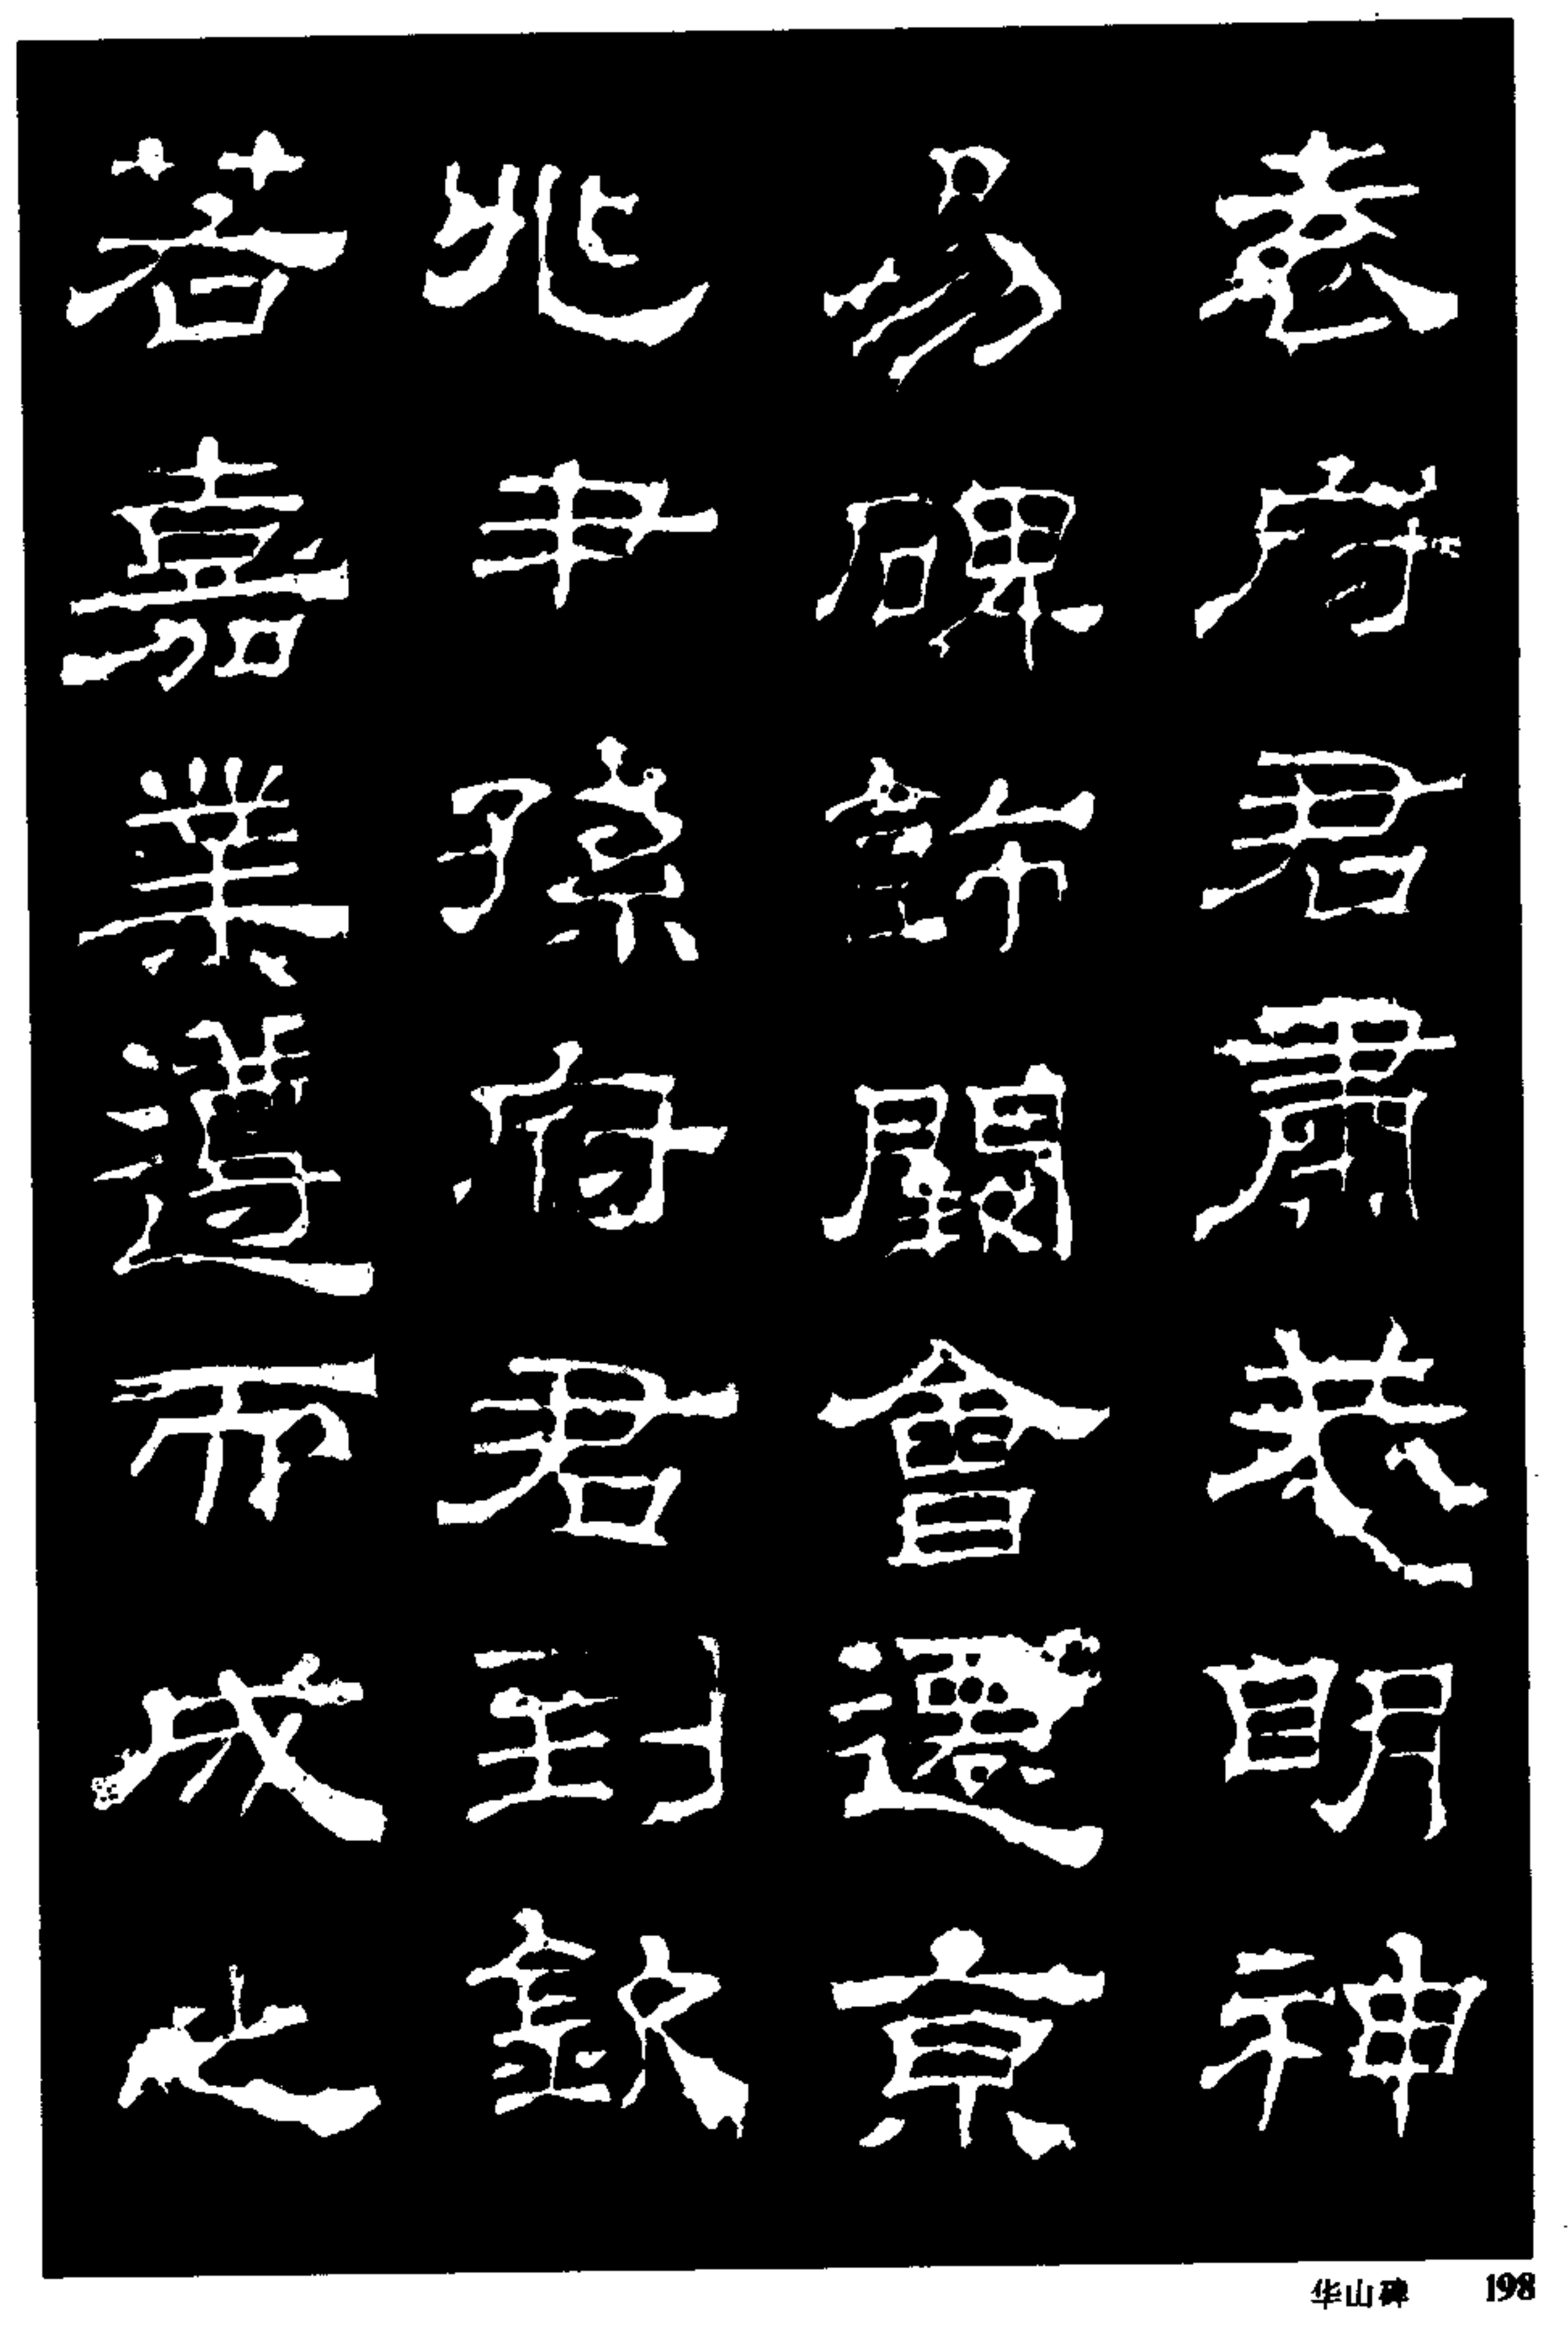 袁府君肅恭明神
易碑飾闕會遷京
兆尹孫府君到欽
若嘉業遵而成之
华山碑 198